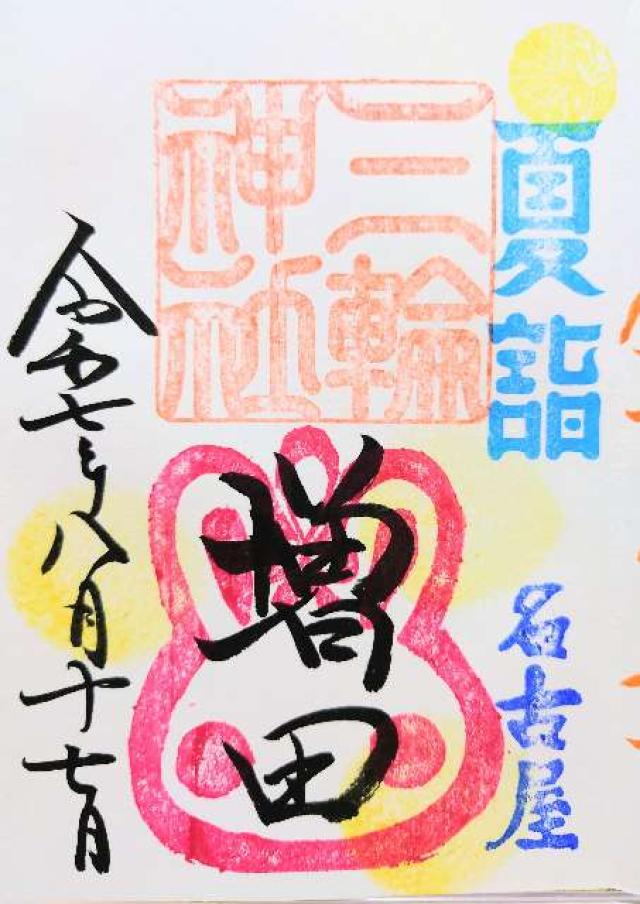 夏詣
名古屋
三輪
神社
増田
令和七年八月十七日